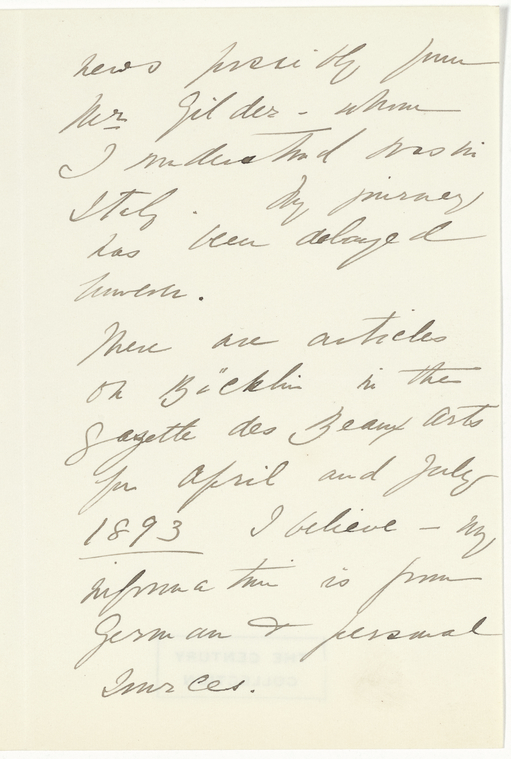 news possibly from
Mr Gilder - whom
I understand was in
Italy. My journey
has been delayed
however.
There are articles
on Böcklin in the
gazette des Beaux Arts
for April and July
1893 I believe - my
information is from
German & personal
sources.
THE CENTURY
COLLECTION